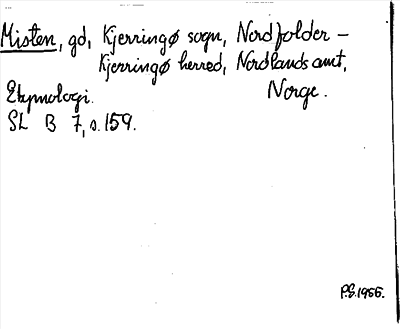 Misten, gd, Kjerringø sogn, Nordfolder -
Kjerringø herred, Nordlands amt,
Norge.
Etymologi.
SL B 7, s. 159.
P.S. 1955.